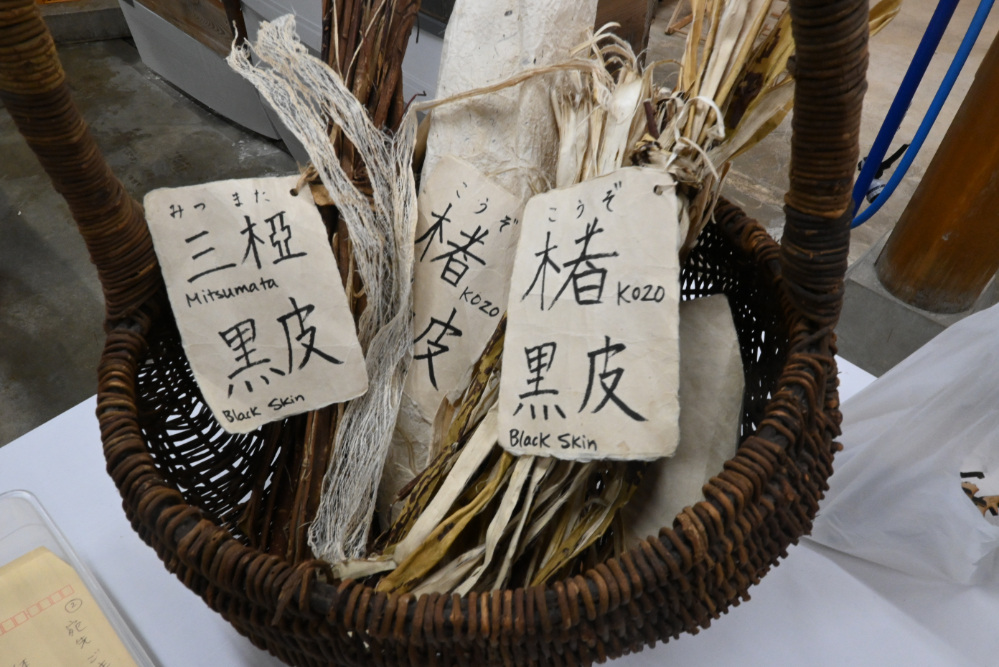 みつまた
三椏
Mitsumata
黒皮
Black Skin
こうぞ
楮
KOZO
皮
こうぞ
楮 KOZO
黒皮
Black Skin
② 宛先